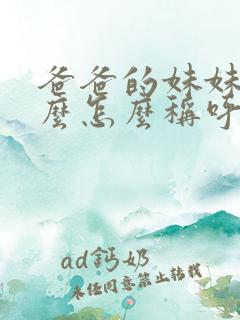 爸爸的妹妹
麼怎麼稱呼
ad鈣奶
未经同意禁止转载